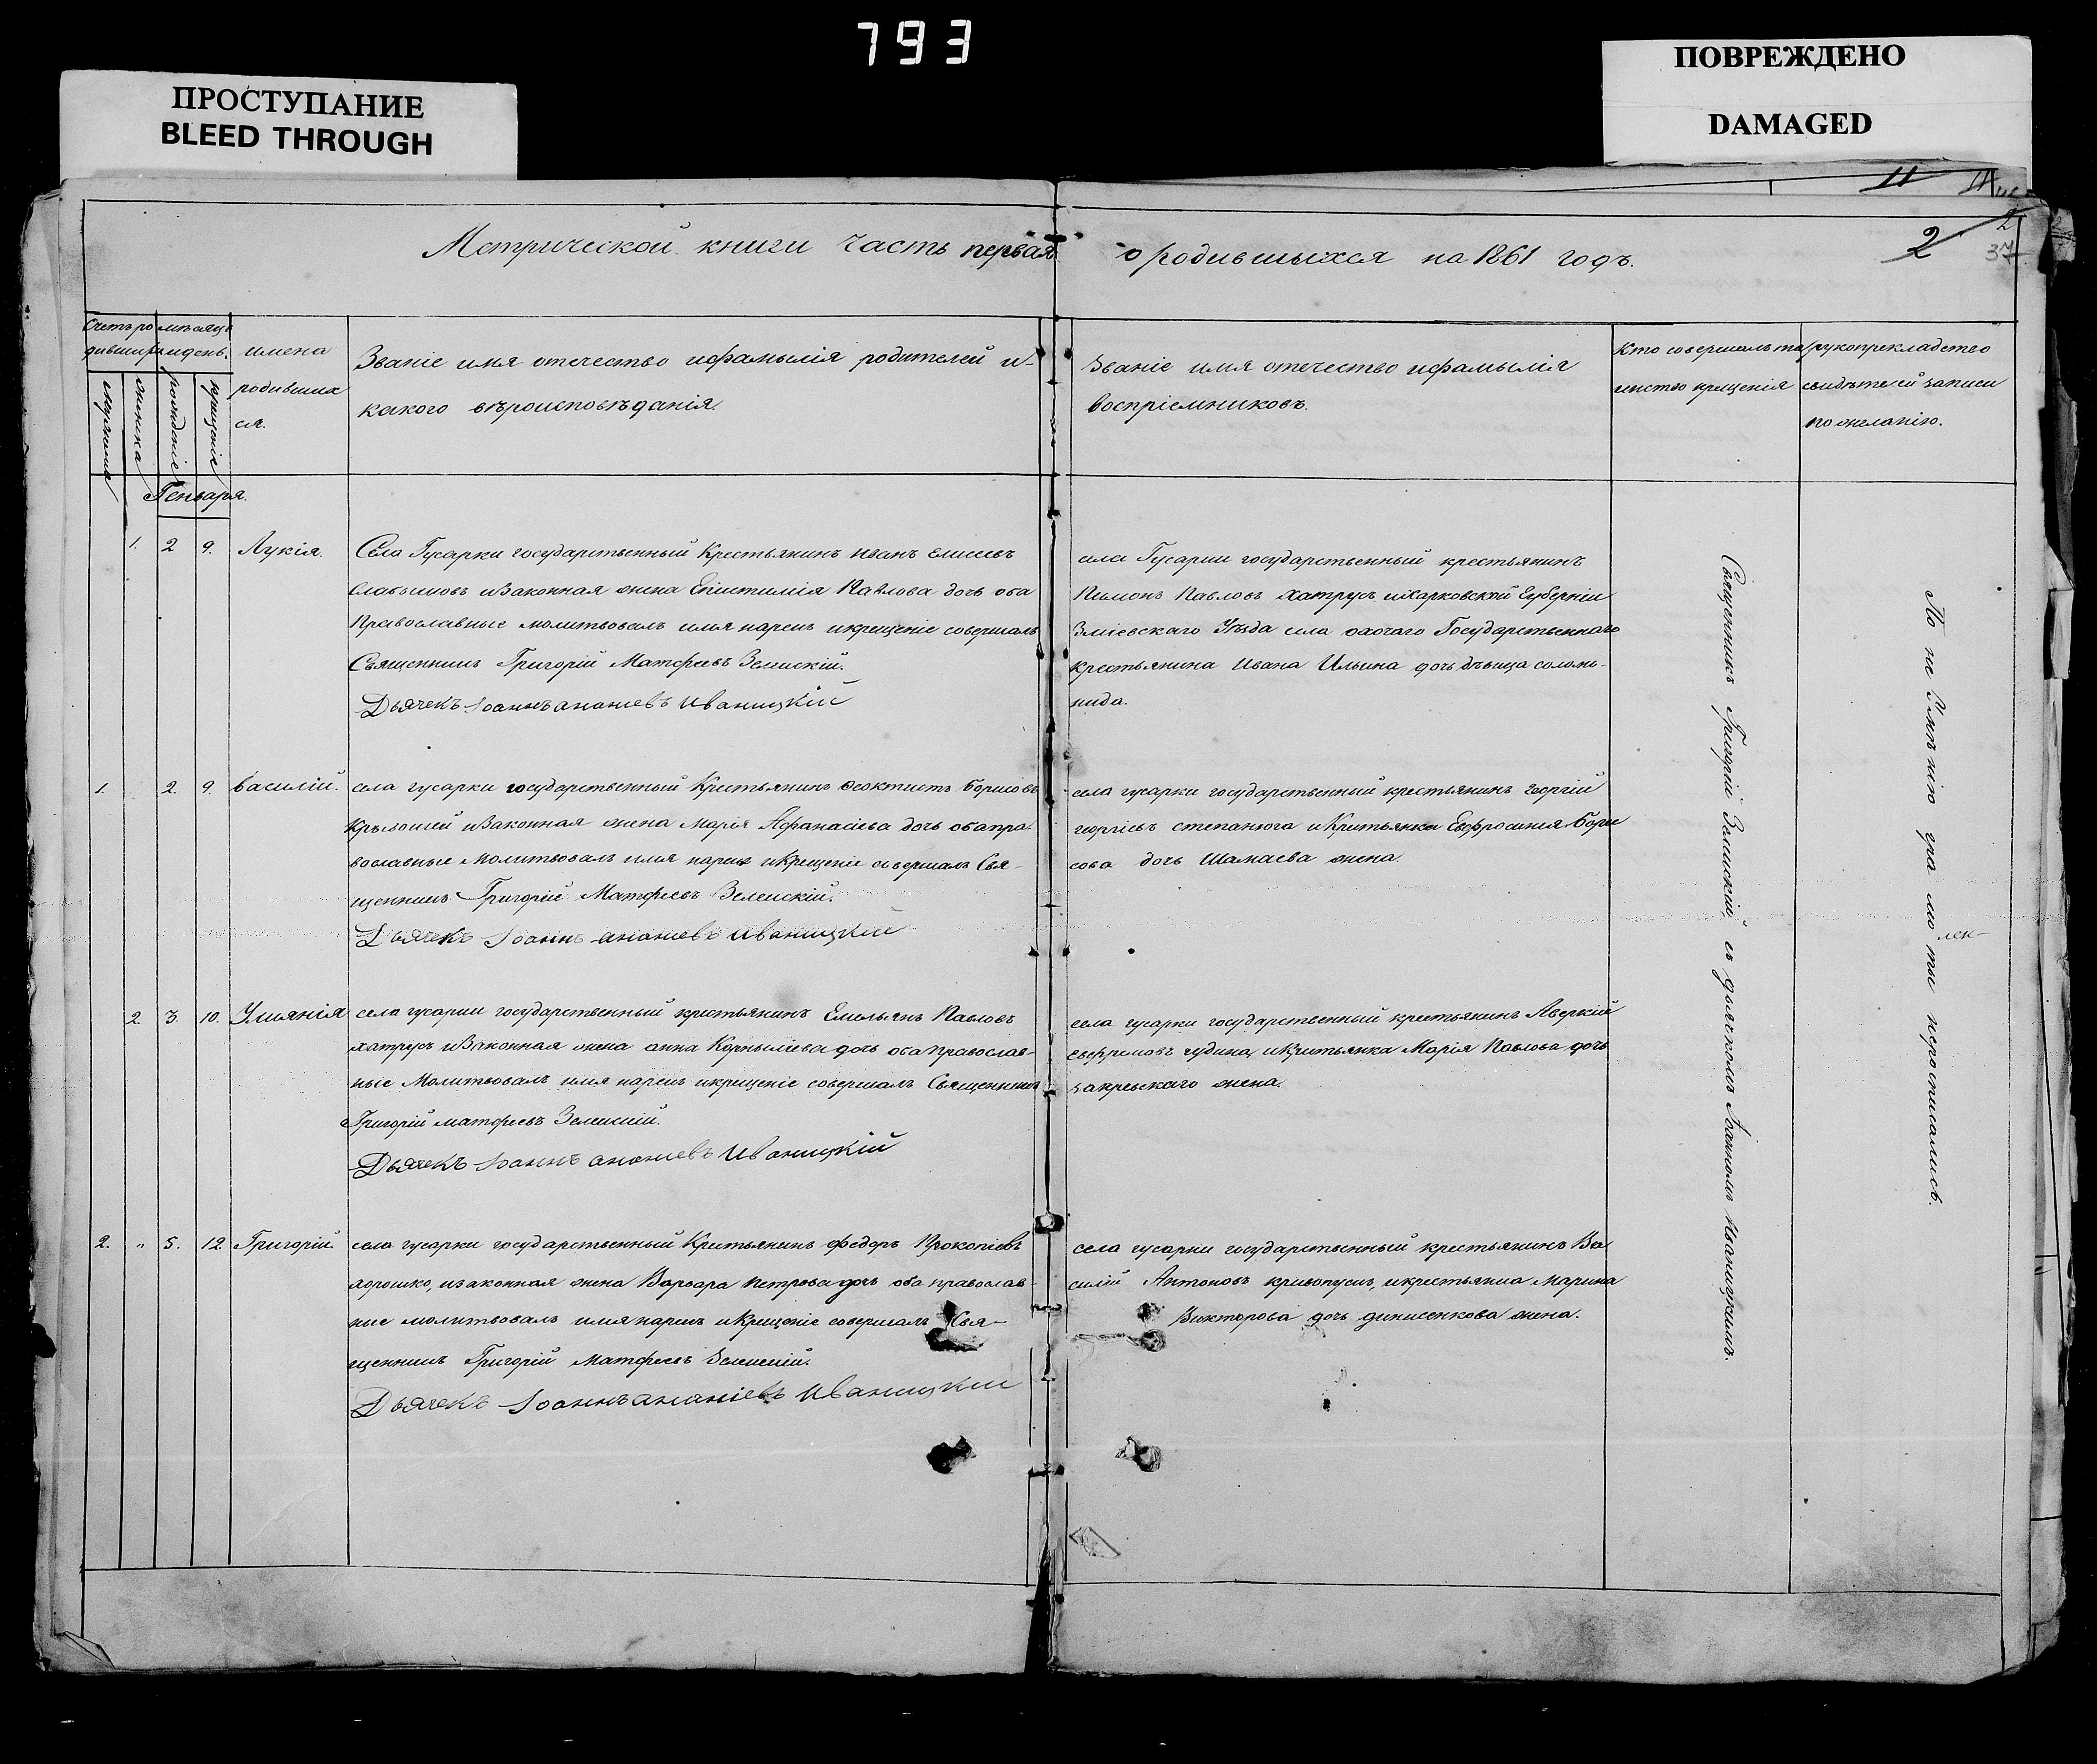 793
ПРОСТУПАНИЕ
BLEED THROUGH
ПОВРЕЖДЕНО
DAMAGED
11
2
2
37
Метрической книги часть первая о родившыхся на 1861 годъ.
Счетъ ро
дившихъ
мужеска
женска
мѣсяцъ
и день.
рожденіе
крещеніе
имена
родивших
ся.
Званіе имя отечество и фамылія родителей и
какого вѣроисповѣданія.
Званіе имя отечество и фамылія
воспріемниковъ.
Кто совершалъ та
инство крещенія
рукоприкладство
свидѣтелей записи
по желанію.
Генваря.
1. 2 9. Лукія.
Села Гусарки государственный Крестьянинъ Иванъ Елисеевъ
и законная жена Епистимія Павлова дочь оба
Православные молитвовалъ имя нарекъ и крещеніе совершалъ
Священникъ Григорій Матфеевъ Зеленскій.
Дьячекъ Іоаннъ ананіевъ Иваницкій
села Гусарки государственный крестьянинъ
Пимонъ Павловъ хатрусъ и Харковской Губерніи
Зміевскаго Уѣзда села охочаго Государственнаго
крестьянина Ивана Ильина дочь дѣвица соломо-
нида.
1. 2. 9. Василій.
села гусарки государственный Крестьянинъ Феоктистъ Борисовъ
и Законная жена Марія Афанасіева дочь оба пра-
вославные Молитвовалъ имя нарекъ и Крещеніе совершалъ Свя-
щенникъ Григорій Матфеевъ Зеленскій.
Дьячекъ Іоаннъ ананіевъ Иваницкій
села гусарки государственный крестьянинъ георгій
георгіевъ степанюга и Крестьянка Евфросинія Бори
сова дочь Шамаева жена.
2. 3. 10. Улиянія
села гусарки государственный крестьянинъ Емельянъ Павловъ
хатрусъ и Законная жена анна Корныліева дочь оба православ-
ные Молитвовалъ имя нарекъ и крещеніе совершалъ Священникъ
Григорій матфеевъ Зеленскій.
Дьячекъ Іоаннъ ананіевъ Иваницкій
села гусарки государственный крестьянинъ Аверкій
Евфремовъ чудина, и Крестьянка Марія Павлова дочь
закревскаго жена.
2. " 5. 12. Григорій.
села гусарки государственный Крестьянинъ Федоръ Прокопіевъ
дорошко, и законная жена Варвара Петрова дочь оба православ-
ные молитвовалъ имя нарекъ и Крещеніе совершалъ Свя-
щенникъ Григорій Матфеевъ Зеленскій.
Дьячекъ Іоаннъ ананіевъ Иваницкій
села гусарки государственный крестьянинъ Ва
силій Антоновъ кривопускъ, и крестьянка Марина
Викторова дочь динисенкова жена.
Священникъ Григорій Зеленскій, съ дьячкомъ Іоанномъ Иваницкимъ.
По не Имѣнію гра мо тые неросписались.